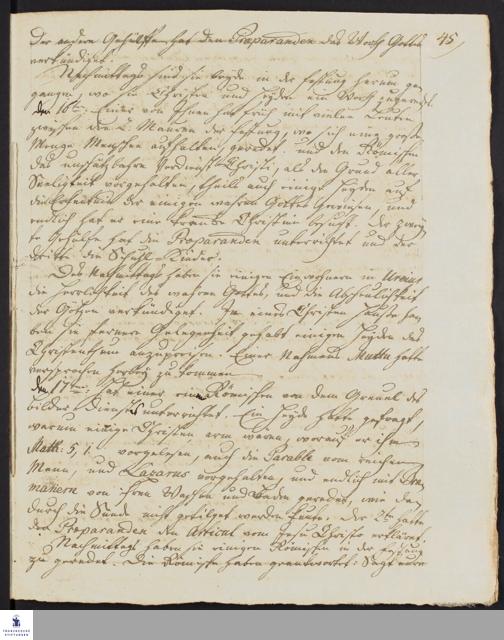 45
Der andere Gehülffe hat den Præparanden das Wort Gottes
verkündiget.
Nachmittags sind sie beyde in der Festung herum ge-
gangen, wo sie Christen und Heyden ein Wort zugeredet.
Den 16ten: Einer von Ihnen hat früh mit vielen Leuten
zwischen den 2. Mauren der Festung, wo sich eine große
Menge Menschen aufhalten, geredet, und den Römischen
das unschätzbahre Verdienst Christi, als den Grund aller
Seeligkeit vorgehalten, theils auch einige Heyden auf
die Erkenntniß des einigen wahren Gottes gewiesen, und
endlich hat er eine krancke Christin besucht. Der zwey-
te Gehülfe hat die Præparanden unterrichtet und der
dritte die Schull-Kinder.
Des Nachmittags haben sie einigen Einwohnern in Ureiur
die Herrlichkeit des wahren Gottes, und die Abscheulichkeit
der Götzen verkündiget. In eines Christen Hause ha-
ben sie fernere Gelegenheit gehabt einigen Heyden das
Christenthum anzupreisen. Einer Nahmens Muttu hatte
versprochen hierher zu kommen
Den 17ten: hat einer einen Römischen von dem Greuel des
Bilder-Dienstes unterrichtet. Ein Heyde hatte gefragt,
warum einige Christen arm wären, worauf er ihm
Math: 5, 1. vorgelesen, auch die Parable vom reichen
Mann, und Lazarus vorgehalten, und endlich mit Bra-
manern von ihrem Waschen und Baden geredet, wie da-
durch die Sünde nicht getilget werden könte. Der 2te hatte
den Præparanden den Articul von Jesu Christo erkläret.
Nachmittags haben sie einigen Römischen in der Festung
zu geredet. Die Römische haben geantwortet: Sagt eure
FRANCKESCHE STIFTUNGEN